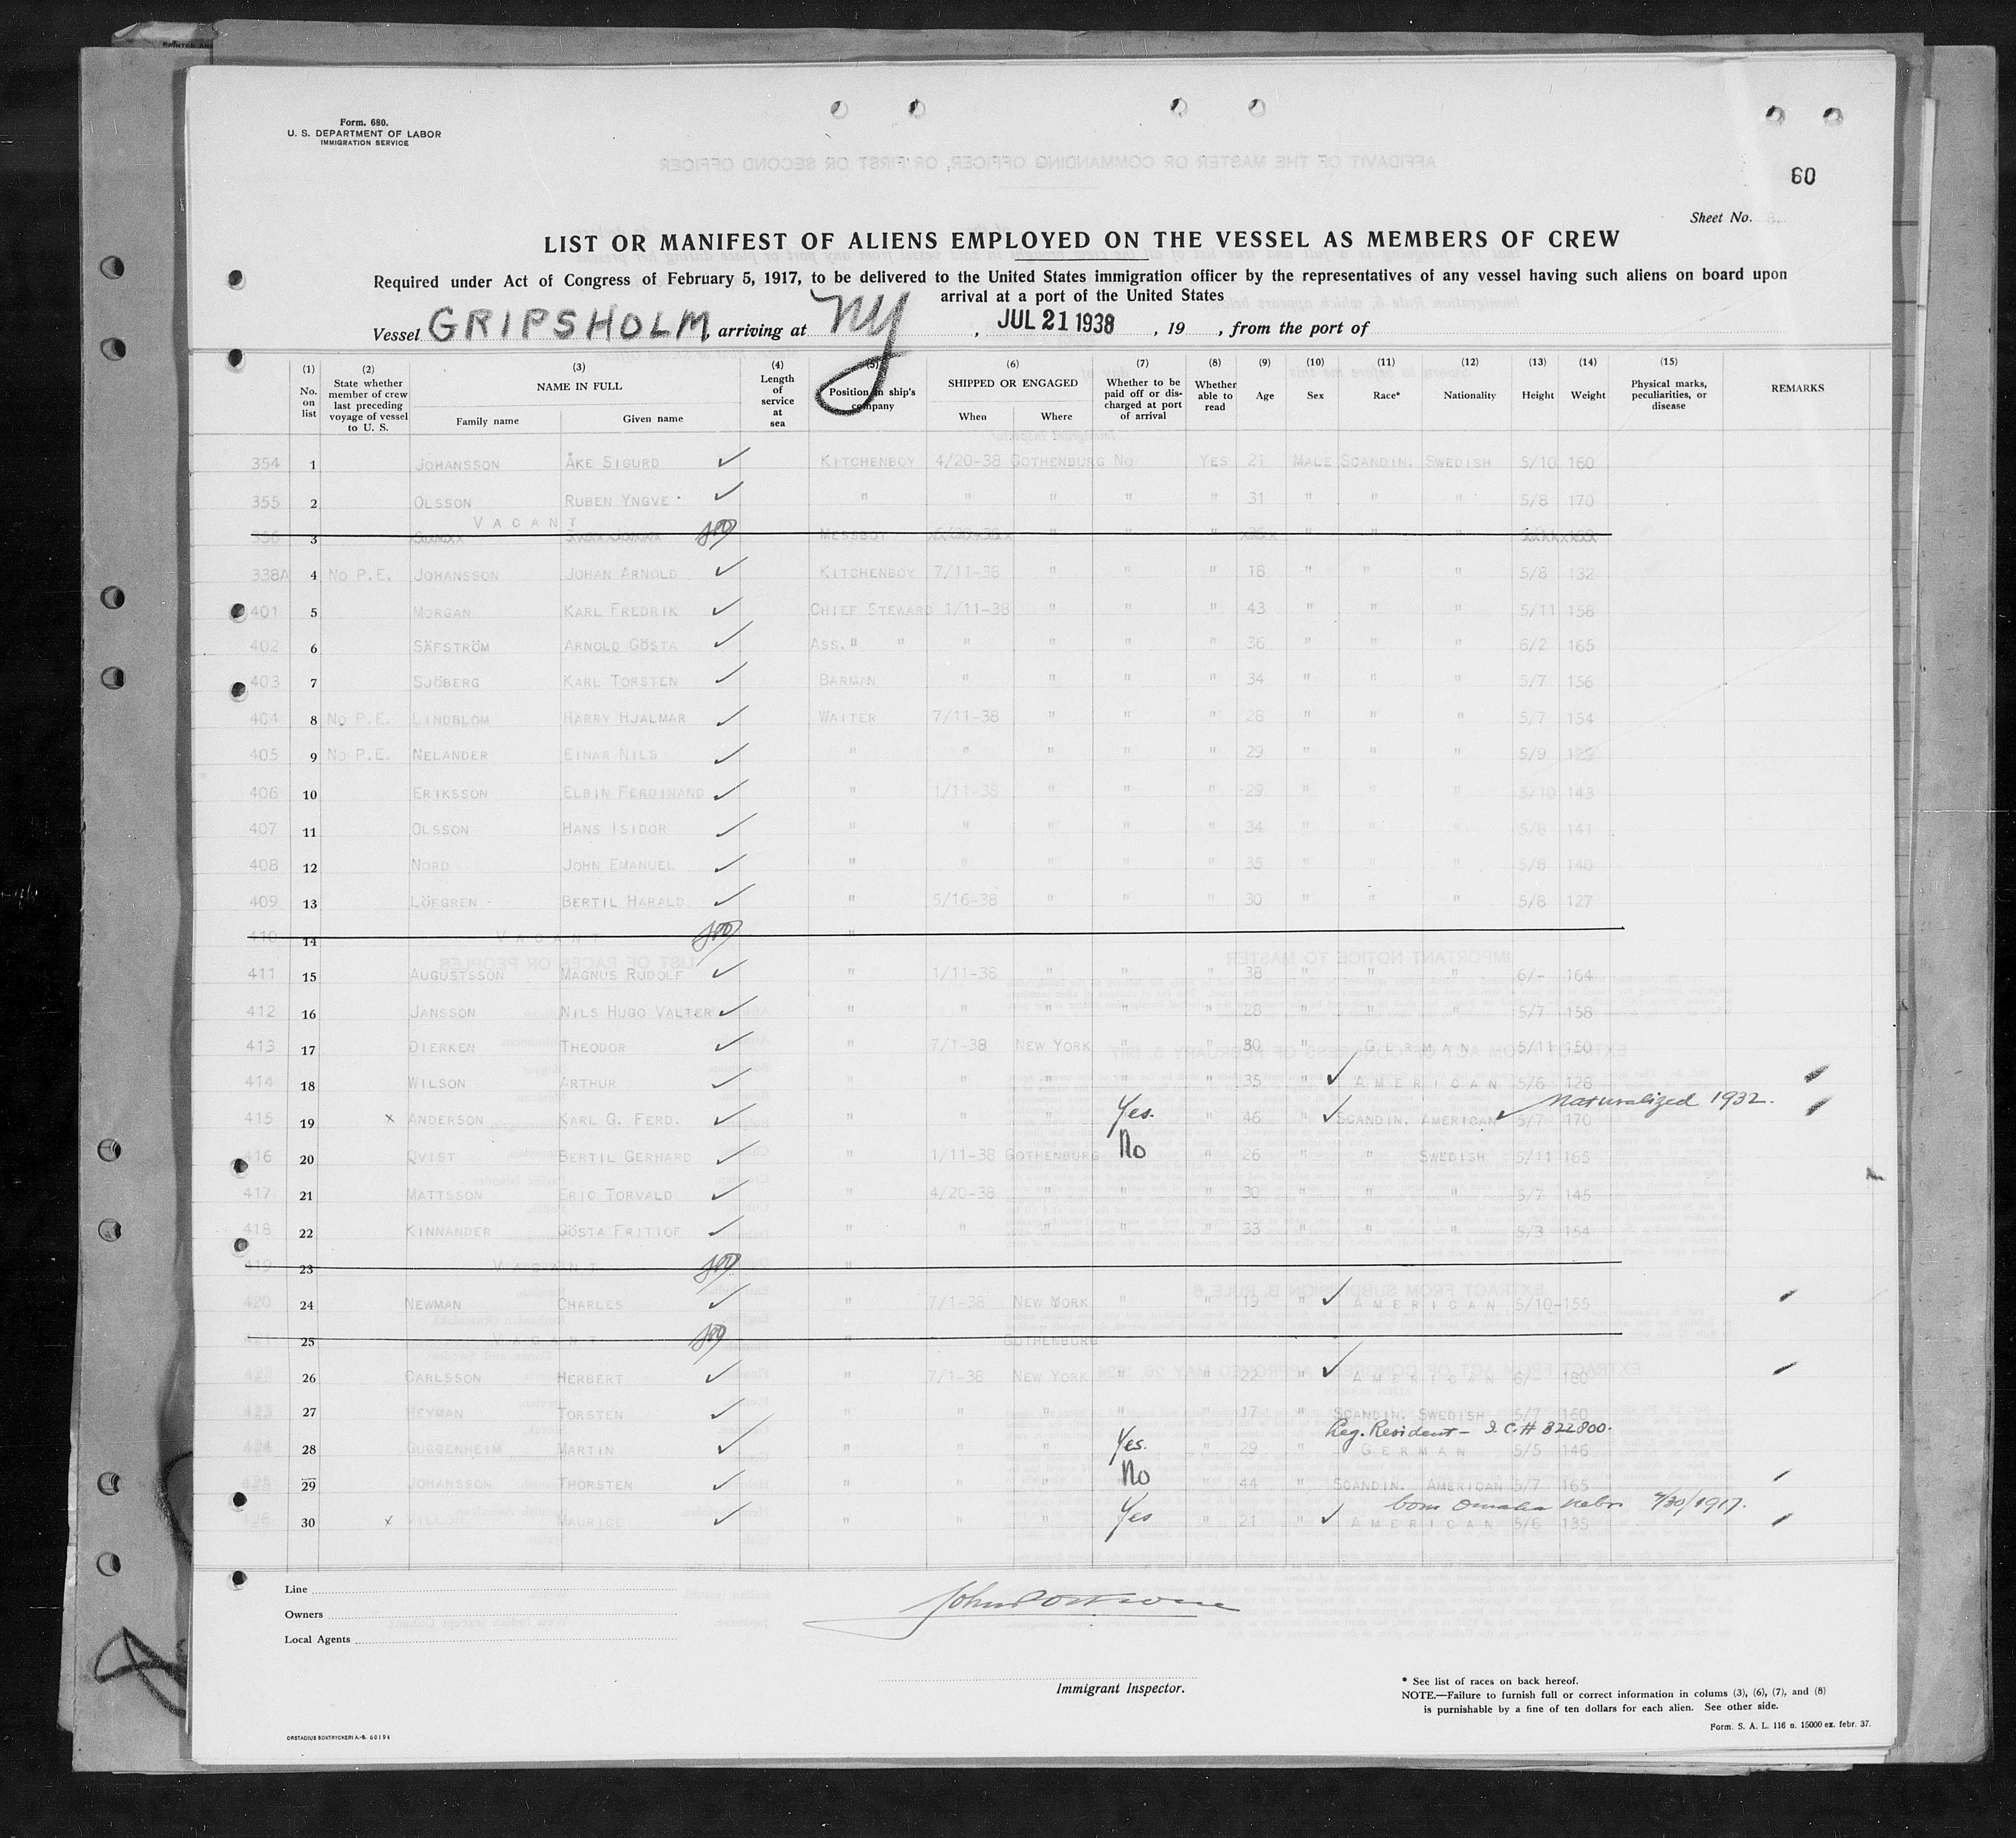 Form. 680.
U. S. DEPARTMENT OF LABOR
IMMIGRATION SERVICE
60
Sheet No.
LIST OR MANIFEST OF ALIENS EMPLOYED ON THE VESSEL AS MEMBERS OF CREW
Required under Act of Congress of February 5, 1917, to be delivered to the United States immigration officer by the representatives of any vessel having such aliens on board upon
arrival at a port of the United States
Vessel GRIPSHOLM, arriving at NY, JUL 21 1938, 19 , from the port of
(1) No. on list (2) State whether member of crew last preceding voyage of vessel to U. S. (3) NAME IN FULL Family name Given name (4) Length of service at sea (5) Position in ship's company (6) SHIPPED OR ENGAGED When Where (7) Whether to be paid off or discharged at port of arrival (8) Whether able to read (9) Age (10) Sex (11) Race* (12) Nationality (13) Height (14) Weight (15) Physical marks, peculiarities, or disease REMARKS
354 1 JOHANSSON ÅKE SIGURD ✓ KITCHENBOY 4/20-38 GOTHENBURG NO YES 21 MALE SCANDIN. SWEDISH 5/10 160
355 2 OLSSON RUBEN YNGVE ✓ " " " " " 31 " " " 5/8 170
356 3 VACANT MESSBOY " " " " " "
338A 4 NO P.E. JOHANSSON JOHAN ARNOLD ✓ KITCHENBOY 7/11-38 " " " 18 " " " 5/8 132
401 5 MORGAN KARL FREDRIK ✓ CHIEF STEWARD 1/11-38 " " " 43 " " " 5/11 158
402 6 SÄFSTRÖM ARNOLD GÖSTA ✓ ASS. " " " " " " 36 " " " 6/2 165
403 7 SJÖBERG KARL TORSTEN ✓ BARMAN " " " " 34 " " " 5/7 156
404 8 NO P.E. LINDBLOM HARRY HJALMAR ✓ WAITER 7/11-38 " " " 28 " " " 5/7 154
405 9 NO P.E. NELANDER EINAR NILS ✓ " " " " " 29 " " " 5/9 129
406 10 ERIKSSON ELBIN FERDINAND ✓ " 1/11-38 " " " 29 " " " 5/10 143
407 11 OLSSON HANS ISIDOR ✓ " " " " " 34 " " " 5/8 141
408 12 NORD JOHN EMANUEL ✓ " " " " " 35 " " " 5/8 140
409 13 LÖFGREN BERTIL HARALD ✓ " 5/16-38 " " " 30 " " " 5/8 127
410 14 VACANT "
411 15 AUGUSTSSON MAGNUS RUDOLF ✓ " 1/11-38 " " " 38 " " " 6/- 164
412 16 JANSSON NILS HUGO VALTER ✓ " " " " " 28 " " " 5/7 158
413 17 DIERKEN THEODOR ✓ " 7/1-38 NEW YORK " " 30 " GERMAN 5/11 150
414 18 WILSON ARTHUR ✓ " " " " " 35 " ✓ AMERICAN 5/6 128
Naturalized 1932.
415 19 x ANDERSON KARL G. FERD. ✓ " " " Yes. " 46 " ✓ SCANDIN. AMERICAN ✓ 5/7 170
416 20 QVIST BERTIL GERHARD ✓ " 1/11-38 GOTHENBURG No " 26 " " SWEDISH 5/11 165
417 21 MATTSSON ERIC TORVALD ✓ " 4/20-38 " " " 30 " " " 5/7 145
418 22 KINNANDER GÖSTA FRITIOF ✓ " " " " " 33 " " " 5/3 154
419 23 VACANT "
420 24 NEWMAN CHARLES ✓ " 7/1-38 NEW YORK " " 19 " ✓ AMERICAN 5/10-155
421 25 VACANT " GOTHENBURG
422 26 CARLSSON HERBERT ✓ " 7/1-38 NEW YORK " " 22 " ✓ AMERICAN 6/- 180
423 27 HEYMAN TORSTEN ✓ " " " " " 17 " SCANDIN. SWEDISH 5/7 160
Leg. Resident - I.C.# 322800.
424 28 GUGGENHEIM MARTIN ✓ " " " Yes. " 29 " GERMAN 5/5 146
425 29 JOHANSSON THORSTEN ✓ " " " No " 44 " SCANDIN. AMERICAN 5/7 165
born Omaha Nebr.
426 30 x MAURICE ✓ " " " Yes " 21 " ✓ AMERICAN 5/6 135
Line
Owners
Local Agents
Immigrant Inspector.
* See list of races on back hereof.
NOTE.—Failure to furnish full or correct information in colums (3), (6), (7), and (8)
is punishable by a fine of ten dollars for each alien. See other side.
Form. S. A. L. 116 n. 15000 ex. febr. 37.